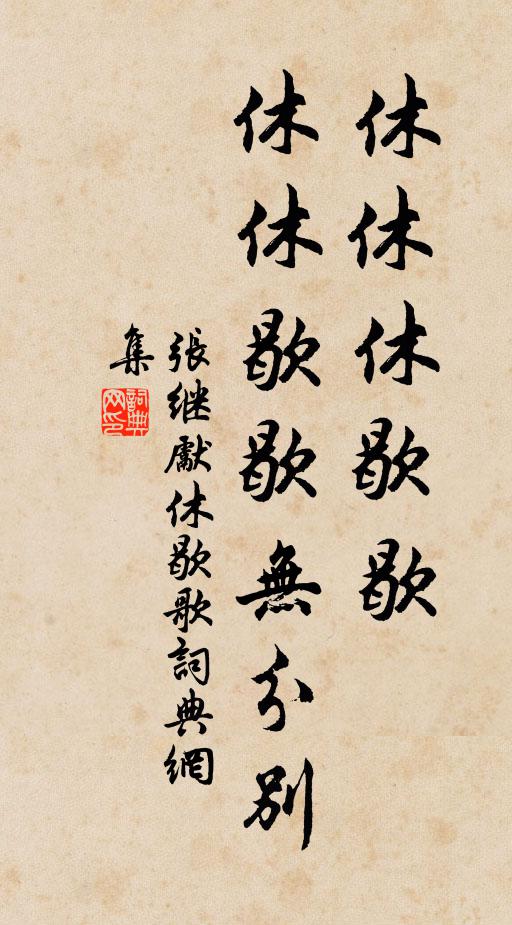 休休休歇歇
休休歇歇無分別
張继獻休歇歌詞典網
集
詞典
网印